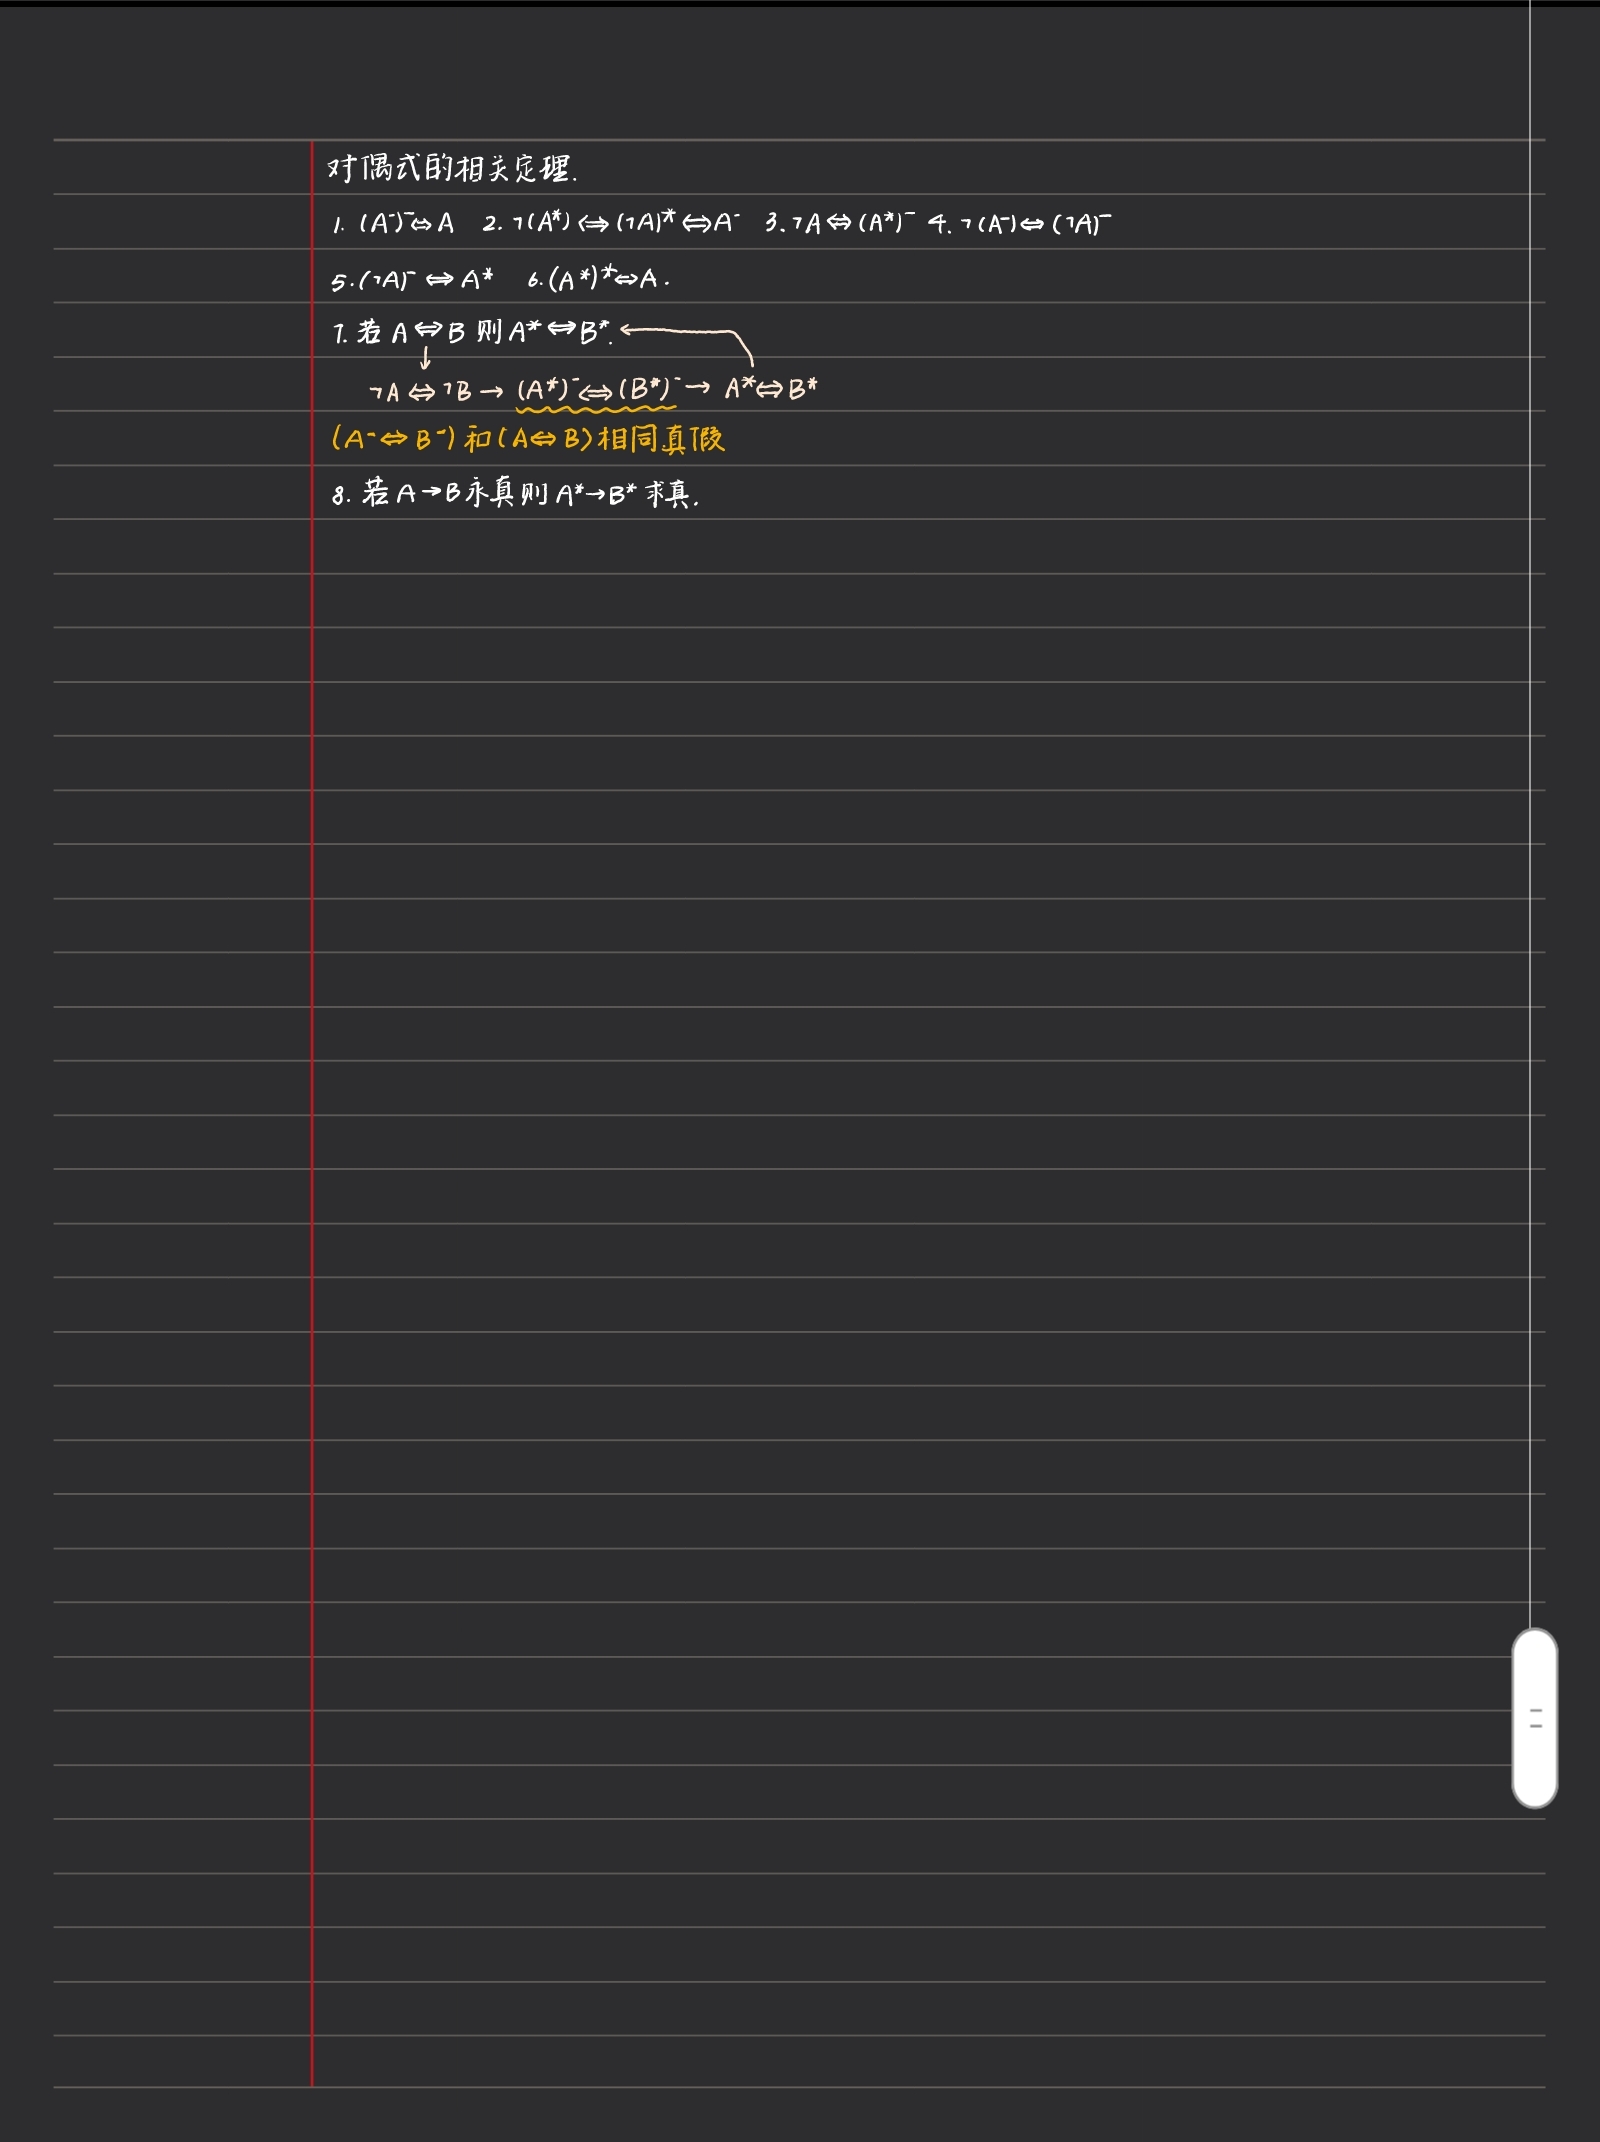 对偶式的相关定理.
1. (A⁻)⁻⇔A 2. ¬(A*)⇔(¬A)*⇔A⁻ 3. ¬A⇔(A*)⁻ 4. ¬(A⁻)⇔(¬A)⁻
5. (¬A)⁻⇔A* 6. (A*)*⇔A.
7. 若 A⇔B 则 A*⇔B*.
¬A⇔¬B→(A*)⁻⇔(B*)⁻→A*⇔B*
(A⁻⇔B⁻)和(A⇔B)相同真假
8. 若 A→B永真则 A*→B* 求真.